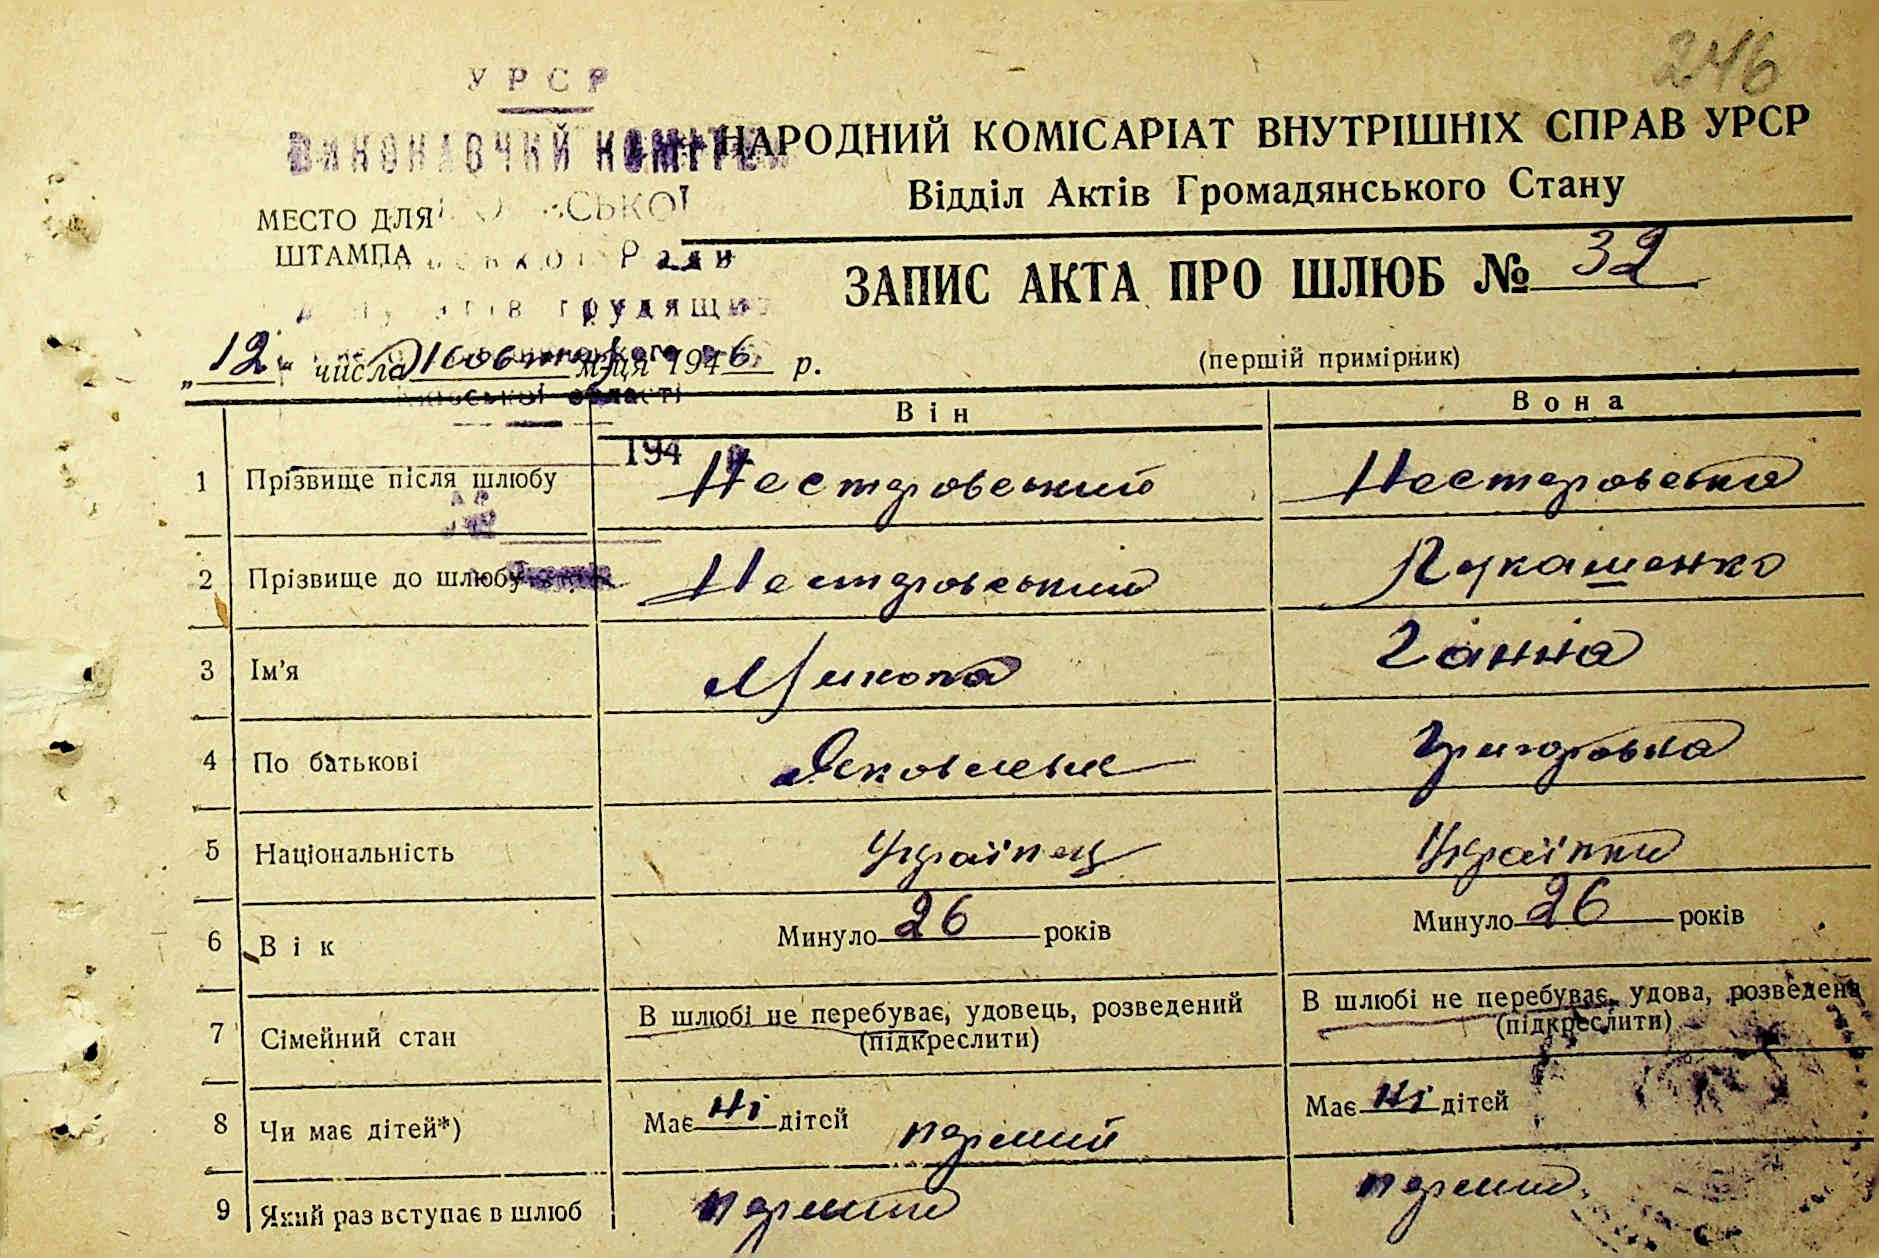 246
УРСР
ВИКОНАВЧИЙ КОМІТЕТ
НАРОДНИЙ КОМІСАРІАТ ВНУТРІШНІХ СПРАВ УРСР
Відділ Актів Громадянського Стану
МЕСТО ДЛЯ
ШТАМПА
СЬКОЇ
Ради
трудящих
ЗАПИС АКТА ПРО ШЛЮБ № 32
(перший примірник)
„12“ числа жовтня м-ця 1946 р.
області
194
Він Вона
1 Прізвище після шлюбу Нестеровський Нестеровська
2 Прізвище до шлюбу Нестеровський Лукашенко
3 Ім'я Микола Ганна
4 По батькові Яковлевич Григоровна
5 Національність Українець Українка
6 Вік Минуло 26 років Минуло 26 років
7 Сімейний стан В шлюбі не перебуває, удовець, розведений (підкреслити) В шлюбі не перебуває, удова, розведена (підкреслити)
8 Чи має дітей*) Має ні дітей Має ні дітей
перший
9 Який раз вступає в шлюб перший перший